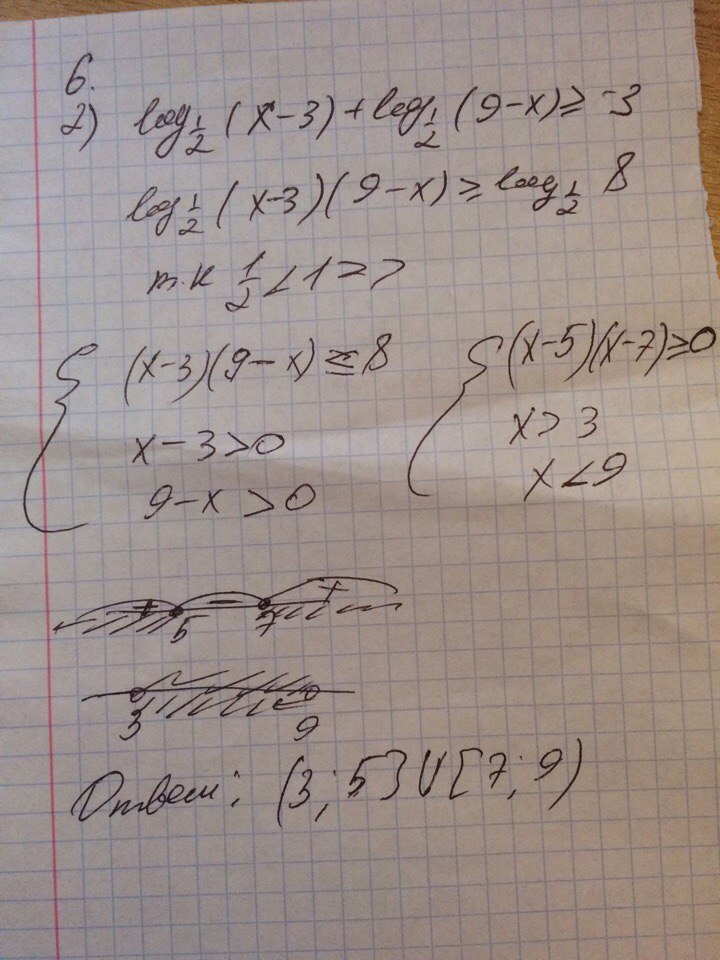 6.
2) log½ (x-3) + log½ (9-x) ≥ -3
log½ (x-3)(9-x) ≥ log½ 8
т.к ½ < 1 =>
(x-3)(9-x) ≤ 8
x-3>0
9-x>0
(x-5)(x-7)≥0
x>3
x<9
+ - +
5 7
3 9
Ответ: (3; 5] U [7; 9)